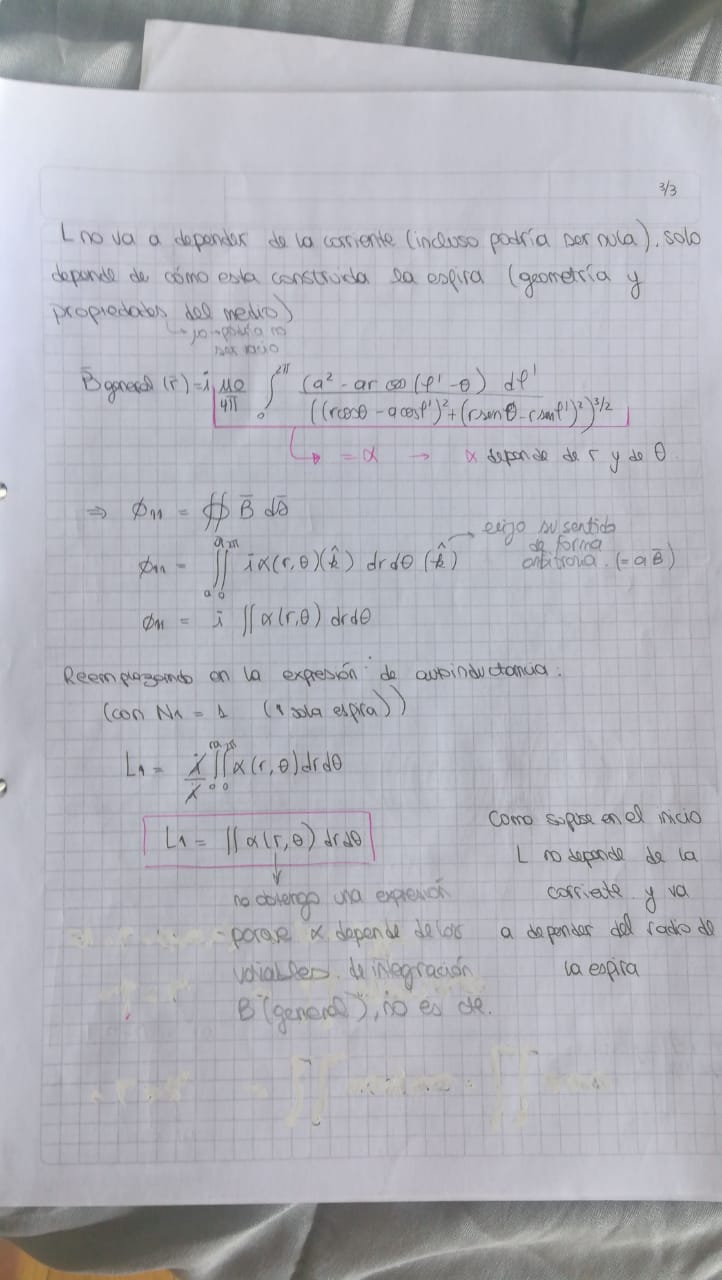 3/3
L no va a depender de la corriente (incluso podría ser nula), solo
depende de cómo esta construida la espira (geometría y
propiedades del medio)
→ yo podría no
ser vacio
B̄ general (r̄) = i μ0/4π ∫₀^2π (a² - ar cos (φ' - θ) dφ' / ((rcosθ - acosφ')² + (rsenθ - rsenφ')²)^3/2
↳ = α → α depende de r y de θ
⇒ Φ11 = ∯ B̄ ds̄
Φ11 = ∬ i α(r,θ)(k̂) dr dθ (k̂) → elijo su sentido
de forma
arbitraria. (= a B̄)
Φ11 = i ∬ α(r,θ) drdθ
Reemplazando en la expresión de autoinductancia:
(con N1 = 1 (1 sola espira))
L1 = i/i ∬ α(r,θ) drdθ
L1 = ∬ α(r,θ) drdθ
no obtengo una expresión
porque α depende de las
variables de integración
B "(general)", no es cte.
Como supuse en el inicio
L no depende de la
corriete y va
a depender del radio de
la espira